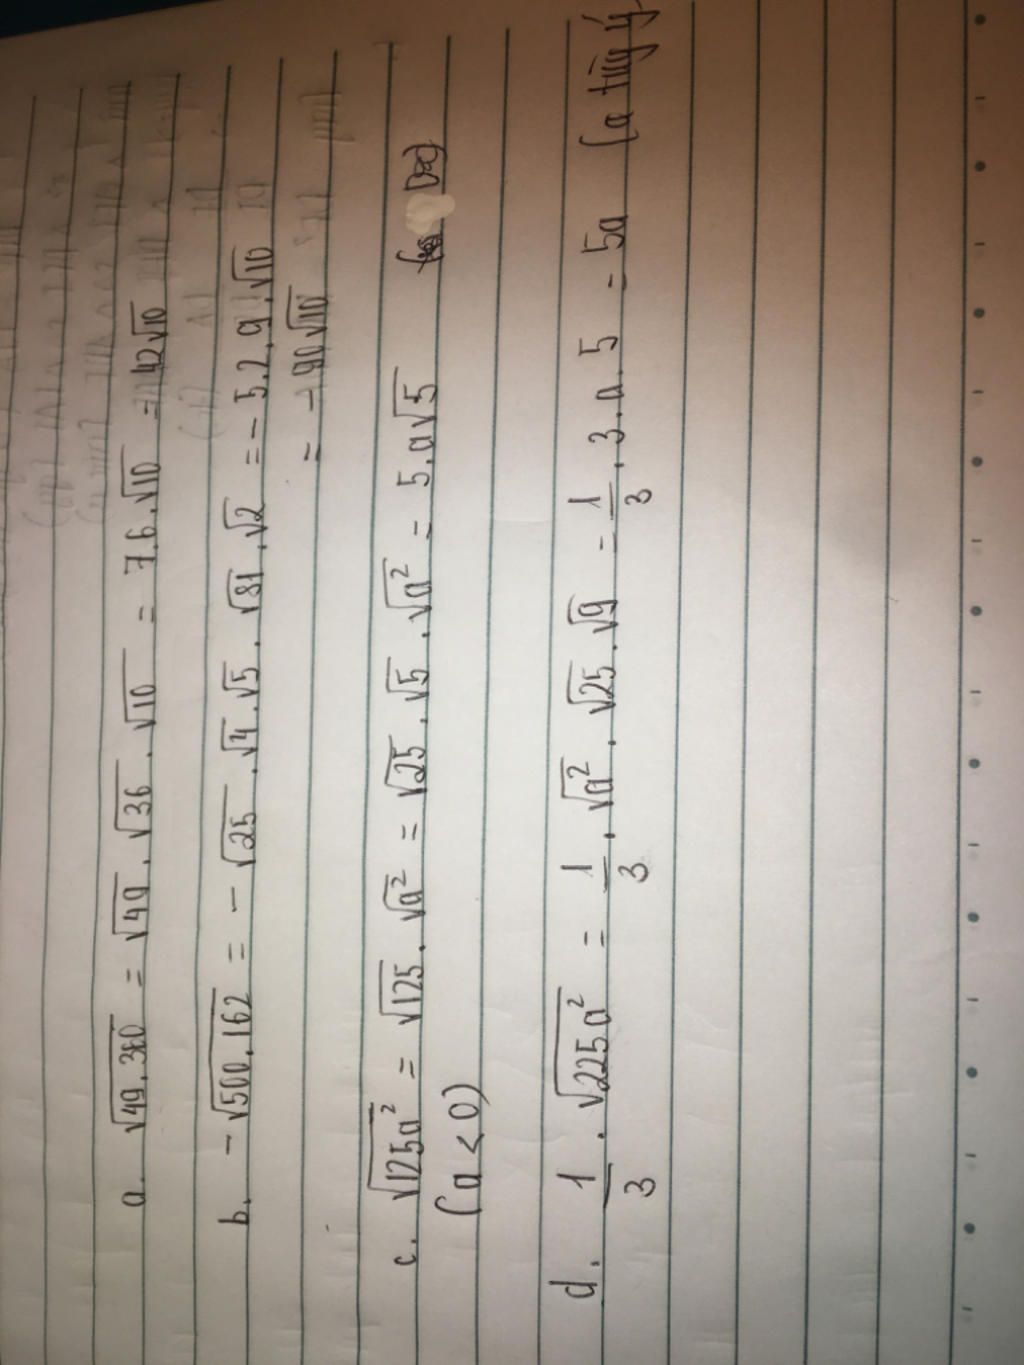 a. √49.360 = √49 . √36 . √10 = 7.6.√10 = 42√10
b. -√500.162 = - √25 . √4 . √5 . √81 . √2 = - 5.2.9.√10
= - 90√10
c. √125a² = √125 . √a² = √25 . √5 . √a² = 5.a√5
(a < 0)
d. 1/3 . √225a² = 1/3 . √a² . √25 . √9 = 1/3 . 3.a.5 = 5a (a tuỳ ý